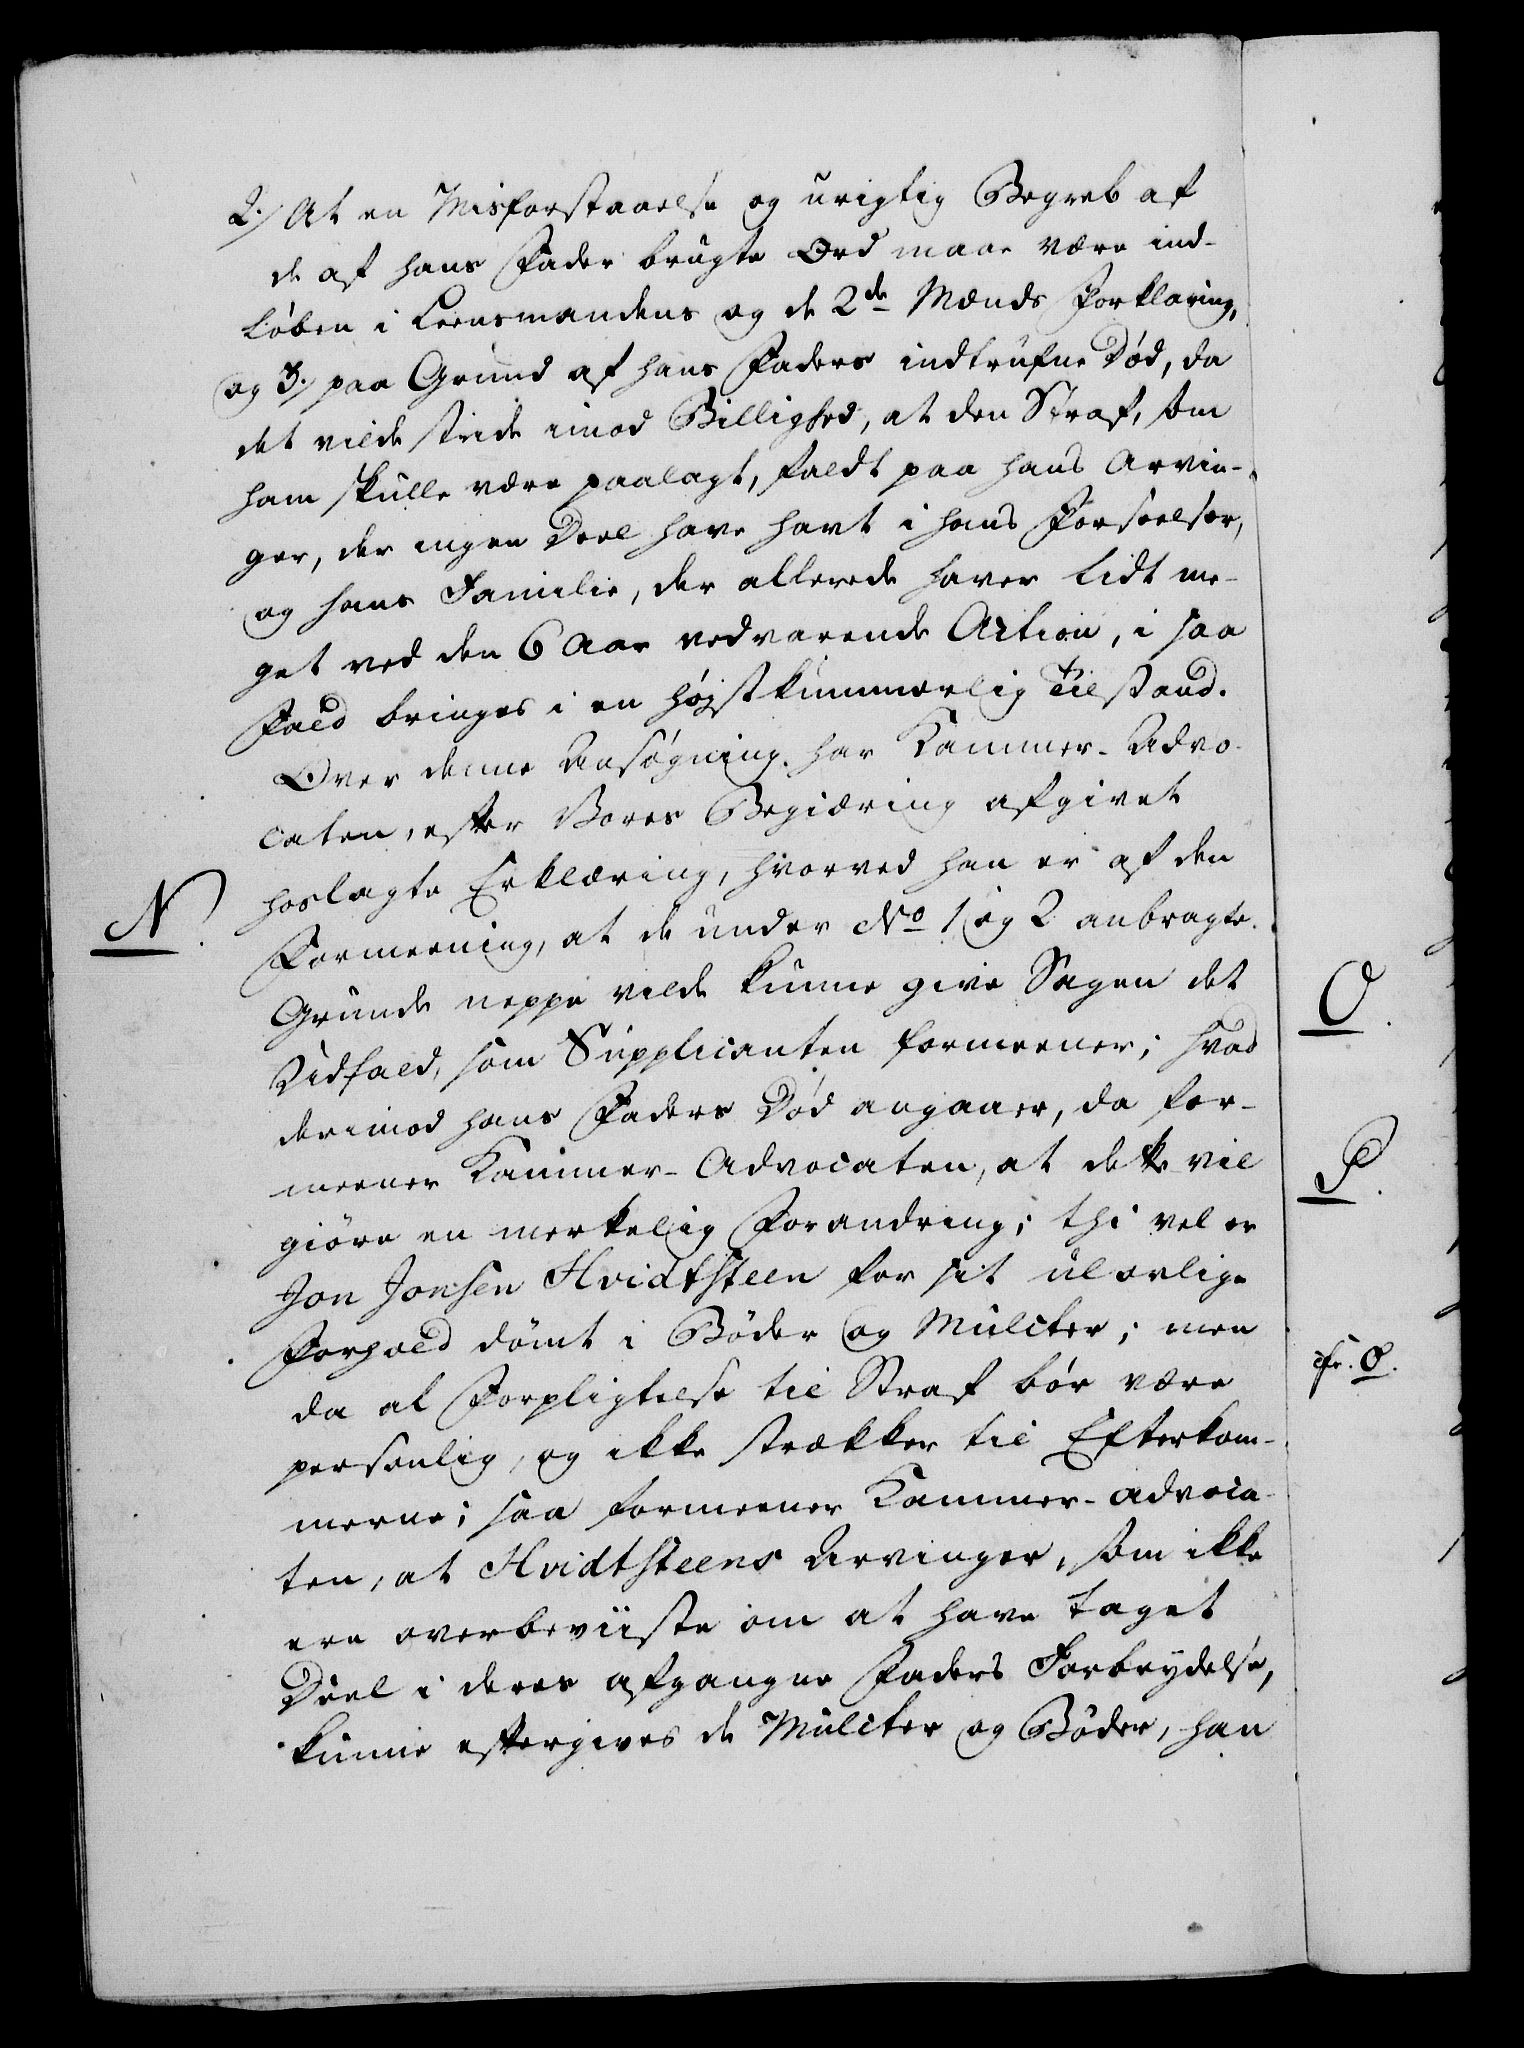 2./ At en Misforstaaelse og urigtig Begreb af
de af hans Fader brugte Ord maae være ind-
løben i Leensmandens og de 2de Mænds Forklaring,
og 3./ paa Grund af hans Faders indtrufne Død, da
det vilde stride imod Billighed, at den Straf, som
ham skulle være paalagt, faldt paa hans Arvin-
ger, der ingen Deel have havt i hans Forseelser,
og hans Familie, der allerede haver lidt me-
get ved den 6 Aar vedvarende Action, i saa
Fald bringes i en højstkummerlig Tilstand.
Over denne Ansøgning har Kammer-Advo-
caten, efter Vores Begiæring afgivet
N. hoslagte Erklæring, hvorved han er af den
Formeening, at de under No 1 og 2 anbragte
Grunde neppe vilde kunne give Sagen det
O.
Udfald, som Supplicanten formeener; hvad
derimod hans Faders Død angaaer, da for-
P.
meener Kammer-Advocaten, at dette vil
giöre en merkelig Forandring; thi vel er
Jon Jonsen Hvidtsteen for sit ulovlige
Forhold dömt i Bøder og Mulcter; men
cfr. O.
da al Forpligtelse til Straf bör være
personlig, og ikke strækker til Efterkom-
merne; saa formeener Kammer-Advoca-
ten, at Hvidtsteens Arvinger, som ikke
ere overbeviiste om at have taget
Deel i deres afgangne Faders Forbrydelse,
kunne eftergives de Mulcter og Bøder, han